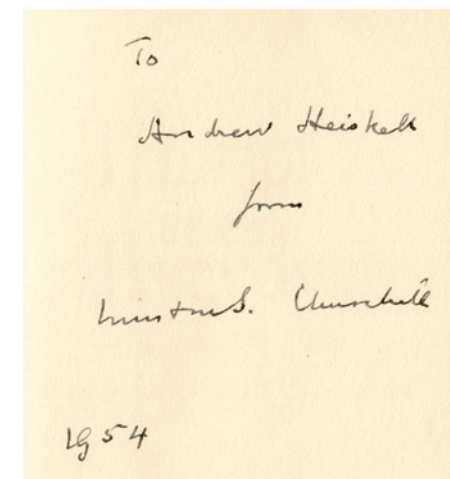 To
Andrew Heiskell
from
Winston S. Churchill
1954